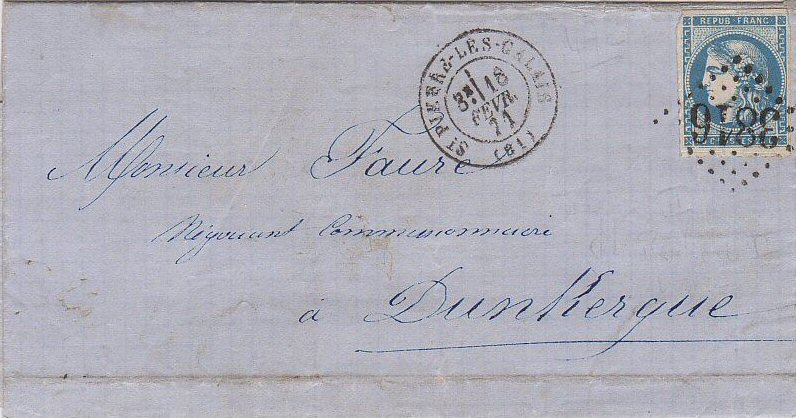 REPUB FRANC
3816
ST PIERRE-LES-CALAIS
3E/18
FEVR.
71
(81)
Monsieur Faure
Négociant Commissionnaire
à Dunkerque